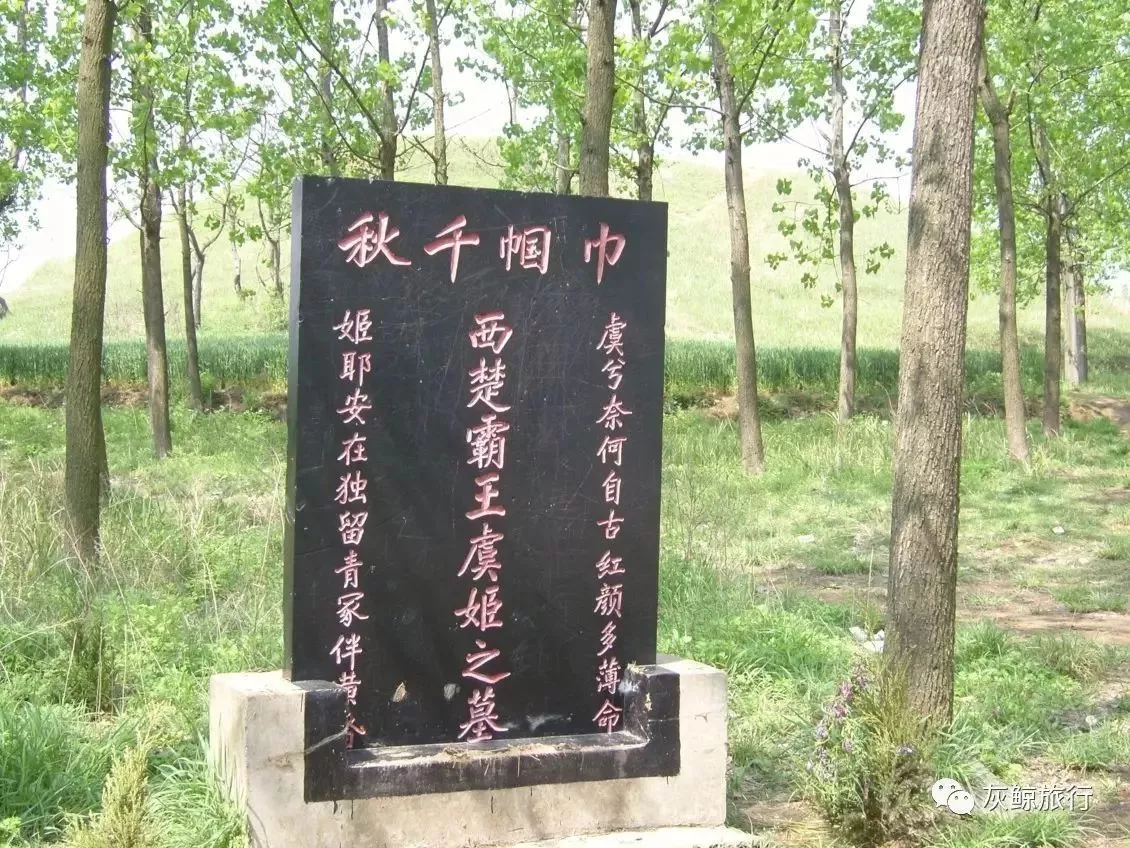 巾帼千秋
虞兮奈何自古红颜多薄命
西楚霸王虞姬之墓
姬耶安在独留青冢伴黄昏
灰鲸旅行